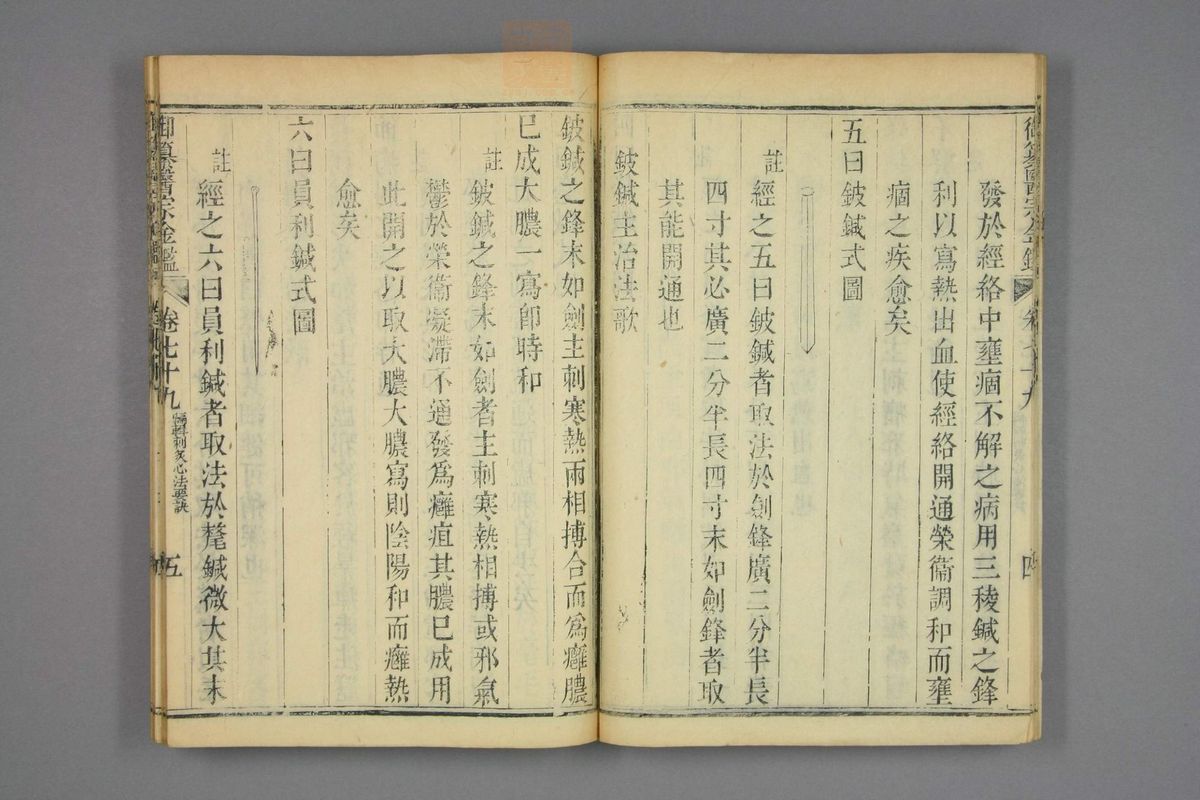 發於經絡中壅痼不解之病用三稜鍼之鋒
利以寫熱出血使經絡開通榮衞調和而壅
痼之疾愈矣
五曰鈹鍼式圖
註
經之五曰鈹鍼者取法於劍鋒廣二分半長
四寸其必廣二分半長四寸末如劍鋒者取
其能開通也
鈹鍼主治法歌
鈹鍼之鋒末如劍主刺寒熱兩相搏合而爲癰膿
已成大膿一寫卽時和
註
鈹鍼之鋒末如劍者主刺寒熱相搏或邪氣
鬱於榮衞凝滯不通發爲癰疽其膿已成用
此開之以取大膿大膿寫則陰陽和而癰熱
愈矣
六曰員利鍼式圖
註
經之六曰員利鍼者取法於氂鍼微大其末
御纂醫宗金鑑
卷七十九
編輯刺灸心法要訣
五
御纂醫宗金鑑
卷七十九
四